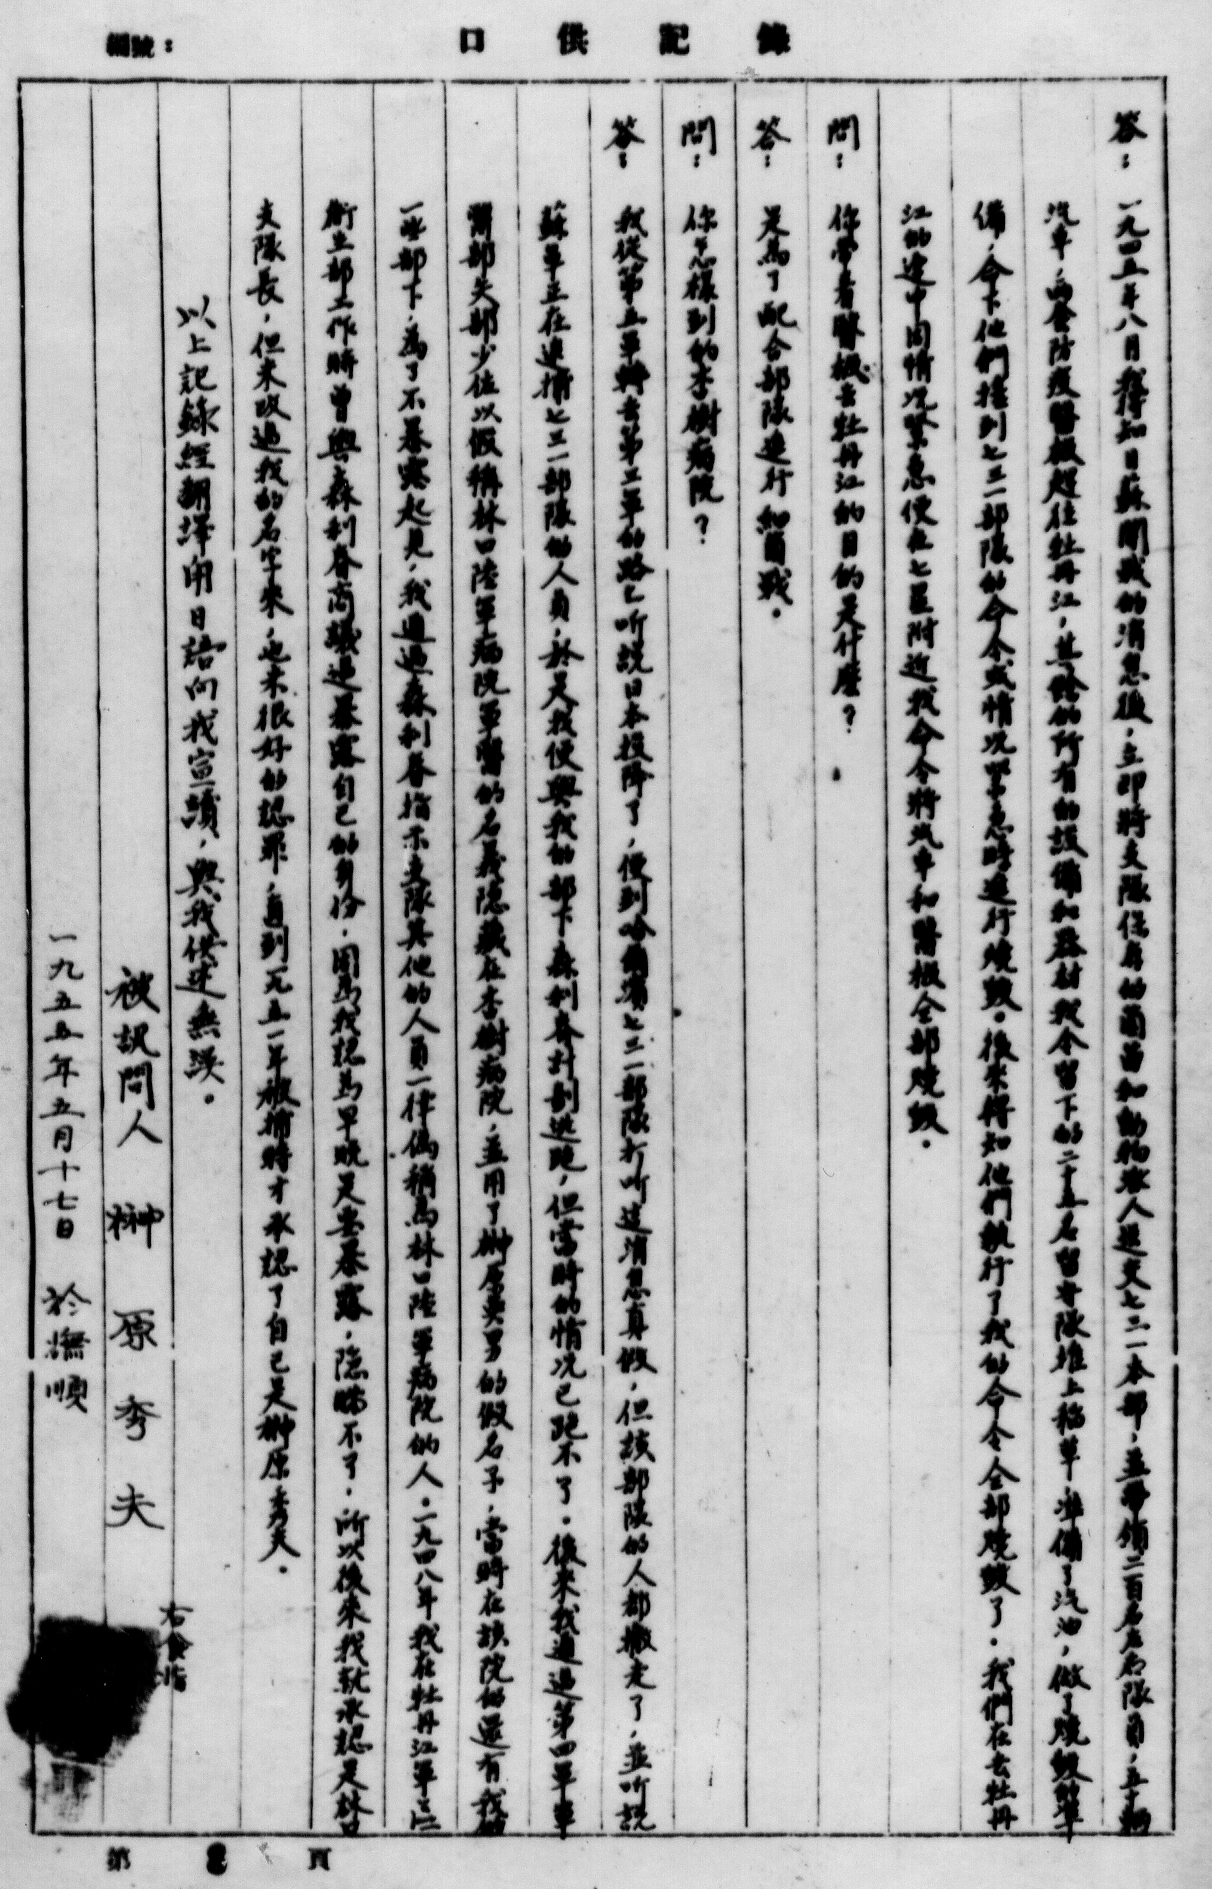 口供記錄
編號：
答：一九四五年八月我得知日蘇開戰的消息後，立即將支隊保存的菌苗和動物派人送交七三一本部，並帶領二百名左右隊員，五十輛
汽車，兩套防疫醫機趕往牡丹江，其餘的所有的設備和器材我令留下的二十五名留守隊堆上稻草，準備了汽油，做了燒毀的準
備，令下他們接到七三一部隊的命令或情況緊急時進行燒毀。後來得知他們執行了我的命令全部燒毀了。我們在去牡丹
江的途中因情況緊急便在七星附近我命令將汽車和醫機全部燒毀。
問：你帶着醫機去牡丹江的目的是什麼？
答：是為了配合部隊進行細菌戰。
問：你怎樣到的杏樹病院？
答：我從第五軍轉去第三軍的路上听說日本投降了，便到哈爾濱七三一部隊打听這消息真假，但該部隊的人都撤走了，並听説
蘇軍正在追捕七三一部隊的人員，於是我便與我的部下森利春計劃逃跑，但當時的情況已跑不了。後來我通過第四軍軍
醫部矢部少佐以假稱林口陸軍病院軍醫的名義隱藏在杏樹病院，並用了榊原英男的假名子，當時在該院的還有我的
一些部下，為了不暴露起見，我通過森利春指示支隊其他的人員一律偽稱為林口陸軍病院的人。一九四八年我在牡丹江軍區
衛生部工作時曾與森利春商議過暴露自己的身份，因為我認為早晚是要暴露，隐瞞不了，所以後來我就承認是林口
支隊長，但未改過我的名字來，也未很好的認罪，直到一九五一年被捕時才承認了自己是榊原秀夫。
以上記錄經翻譯用日語向我宣讀，與我供述無誤。
被訊問人 榊原秀夫
右食指
一九五五年五月十七日 於撫順
第 2 頁